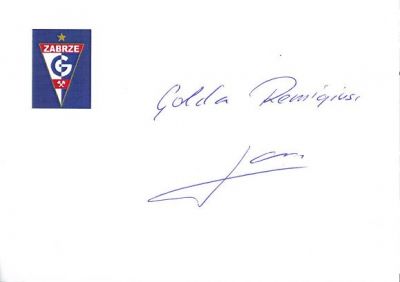 ZABRZE
G
Golda Remigiusz